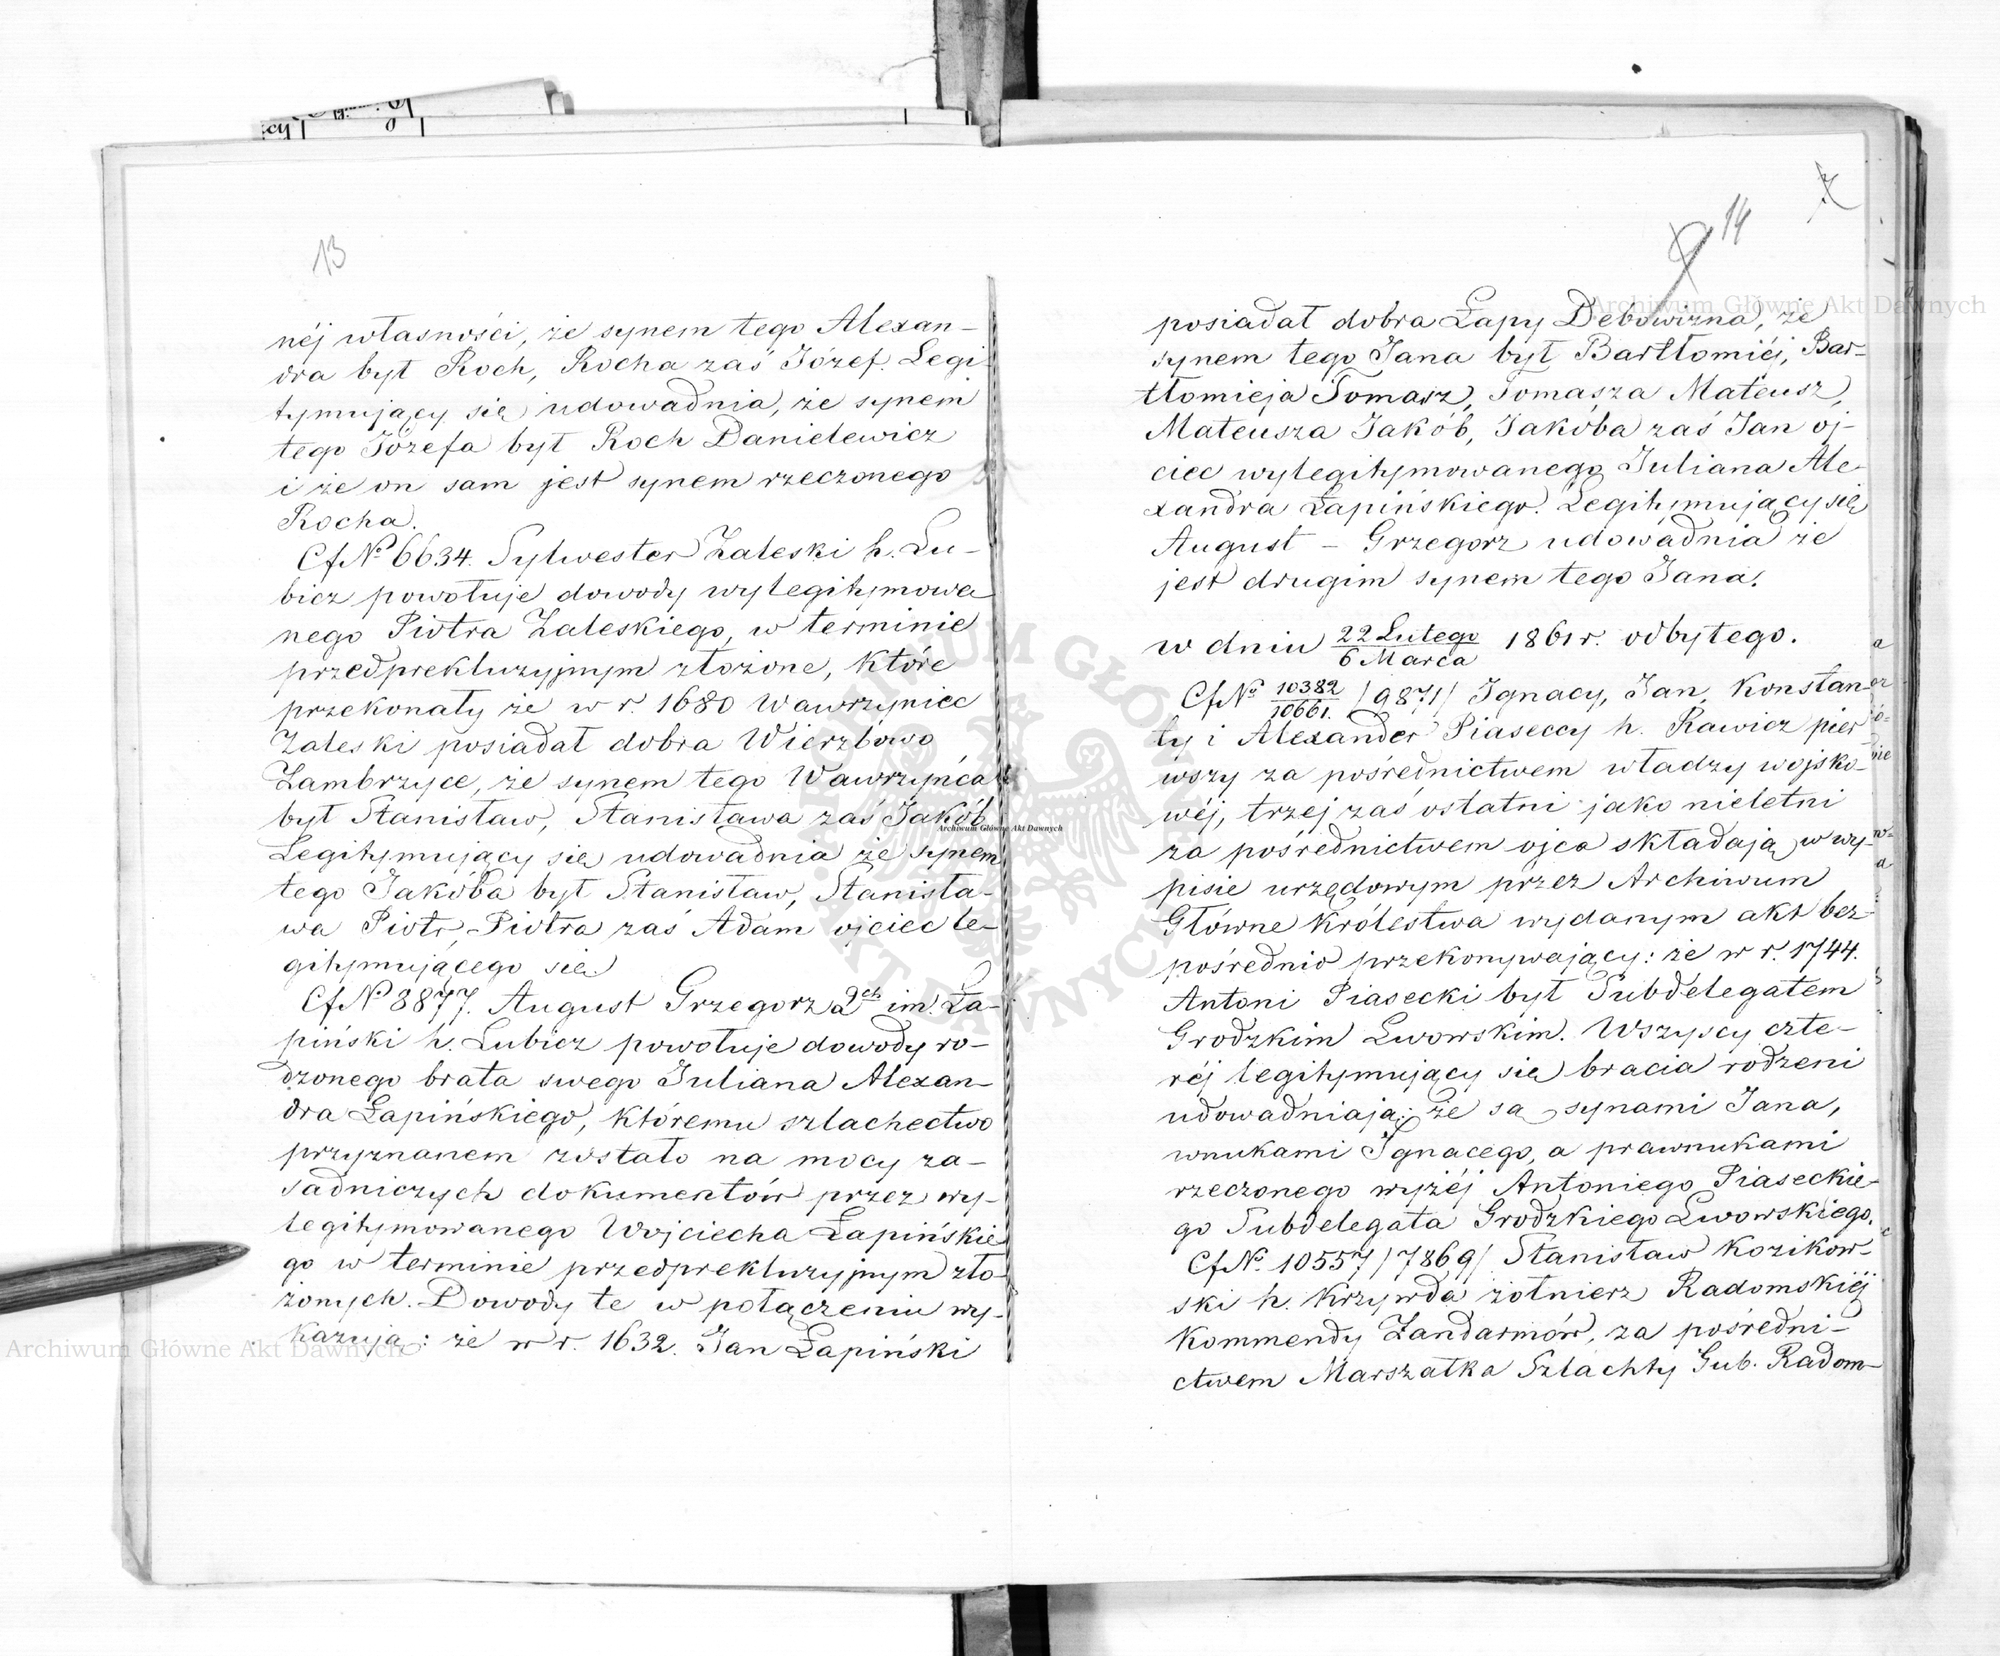 13
néj własności, że synem tego Alexan-
dra był Roch, Rocha zaś Józef. Legi-
tymujący się udowadnia, że synem
tego Józefa był Roch Danielewicz
i że on sam jest synem rzeczonego
Rocha.
Cf № 6634. Sylwester Zaleski h. Lu-
bicz powołuje dowody wylegitymowa
nego Piotra Zaleskiego, w terminie
przedprekluzyjnym złożone, które
przekonały że w r. 1680 Wawrzyniec
Zaleski posiadał dobra Wierzbowo
Zambrzyce, że synem tego Wawrzyńca
był Stanisław, Stanisława zaś Jakób
Legitymujący się udowadnia że synem
tego Jakóba był Stanisław, Stanisła-
wa Piotr, Piotra zaś Adam ojciec le-
gitymującego się.
Cf № 8877. August Grzegorz 2ch im. Ła-
piński h. Lubicz powołuje dowody ro-
dzonego brata swego Juliana Alexan-
dra Łapińskiego, któremu szlachectwo
przyznanem zostało na mocy za-
sadniczych dokumentów przez wy-
legitymowanego Wojciecha Łapińskie
go w terminie przedprekluzyjnym zło-
żonych. Dowody te w połączeniu wy-
kazują: że w r. 1632. Jan Łapiński
14
posiadał dobra Łapy Dębowizna, że
synem tego Jana był Bartłomiéj, Bar-
tłomieja Tomasz, Tomasza Mateusz,
Mateusza Jakób, Jakóba zaś Jan oj-
ciec wylegitymowanego Juliana Ale-
xandra Łapińskiego. Legitymujący się
August - Grzegorz udowadnia że
jest drugim synem tego Jana.
w dniu 22 Lutego / 6 Marca 1861 r. odbytego.
Cf № 10382 / 10661. /9871/ Ignacy, Jan, Konstan-
ty i Alexander Piaseccy h. Rawicz pier
wszy za pośrednictwem władzy wojsko-
wéj, trzej zaś ostatni jako nieletni
za pośrednictwem ojca składają w wy-
pisie urzędowym przez Archiwum
Główne Królestwa wydanym akt bez
pośrednio przekonywający: że w r. 1744.
Antoni Piasecki był Subdelegatem
Grodzkim Lwowskim. Wszyscy czte-
réj legitymujący się bracia rodzeni
udowadniają: że są synami Jana,
wnukami Ignacego, a prawnukami
rzeczonego wyżéj Antoniego Piaseckie-
go Subdelegata Grodzkiego Lwowskiego.
Cf №. 10557 /7869/ Stanisław Kozikow-
ski h. Krzywda żołnierz Radomskiéj
Kommendy Żandarmów, za pośredni-
ctwem Marszałka Szlachty Gub. Radom-
Archiwum Główne Akt Dawnych
Archiwum Główne Akt Dawnych
Archiwum Główne Akt Dawnych